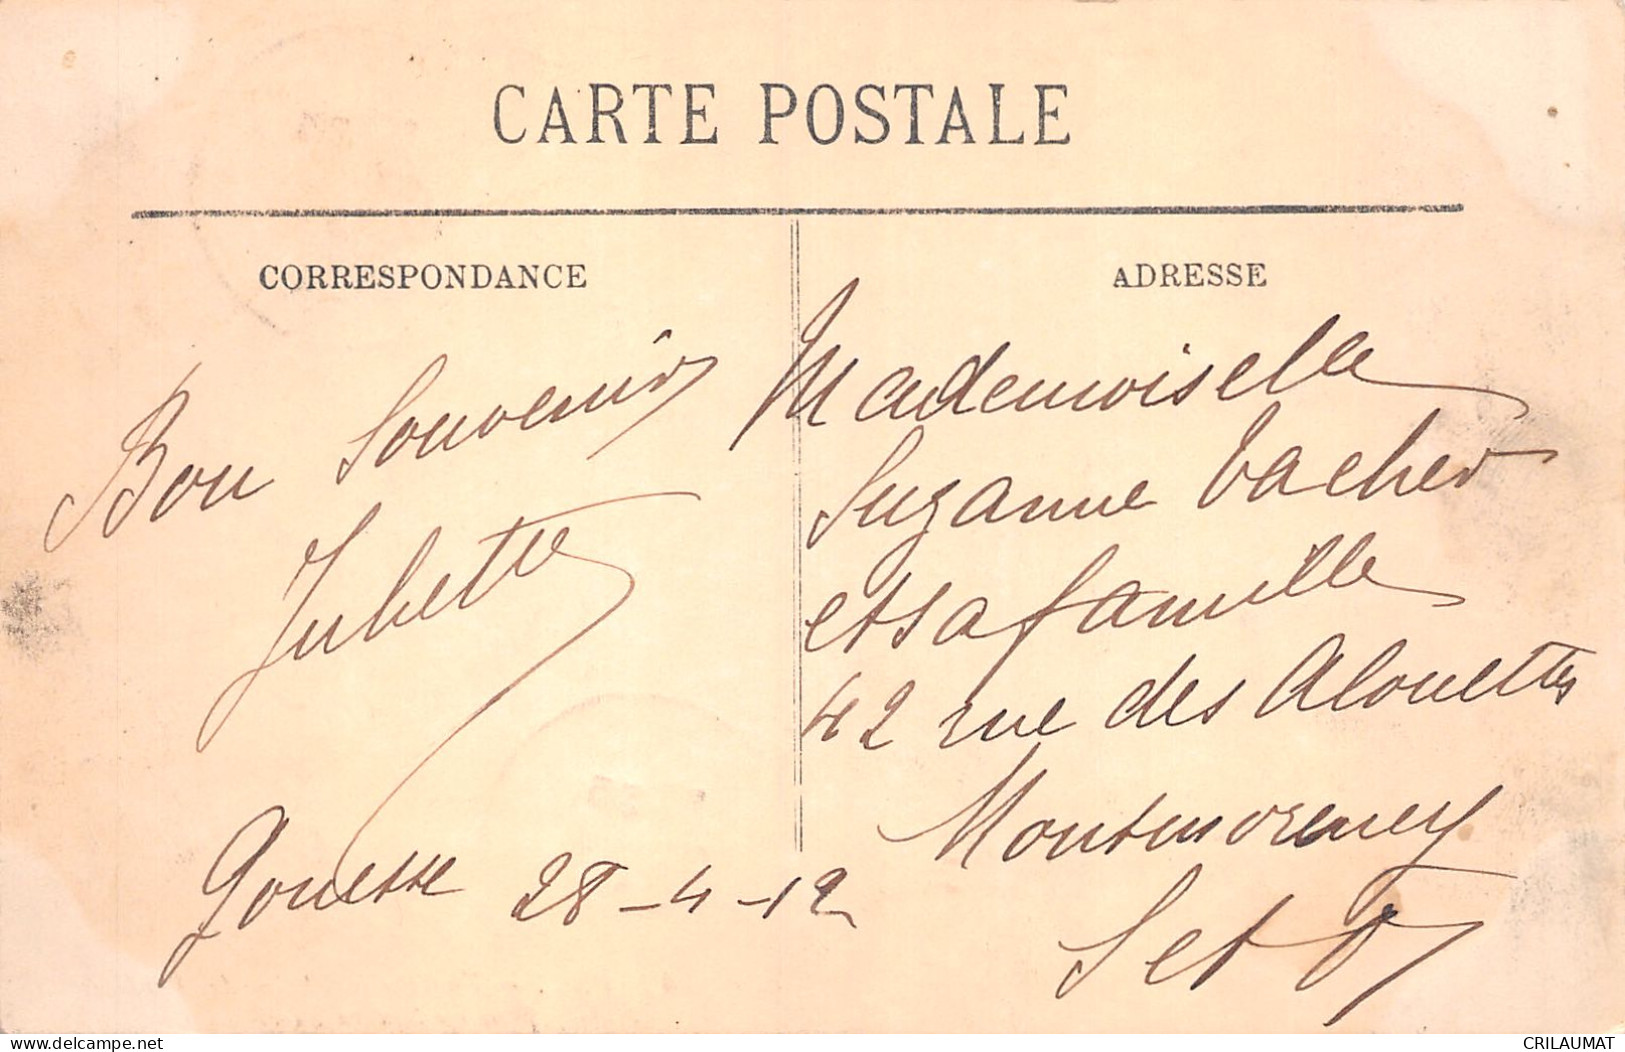 CARTE POSTALE
CORRESPONDANCE
ADRESSE
Bon Souvenir
Juliette
Gonesse 28-4-12
Mademoiselle
Suzanne Vacher
et sa famille
42 rue des Alouettes
Montmorency
S et O
www.delcampe.net
CRILAUMAT